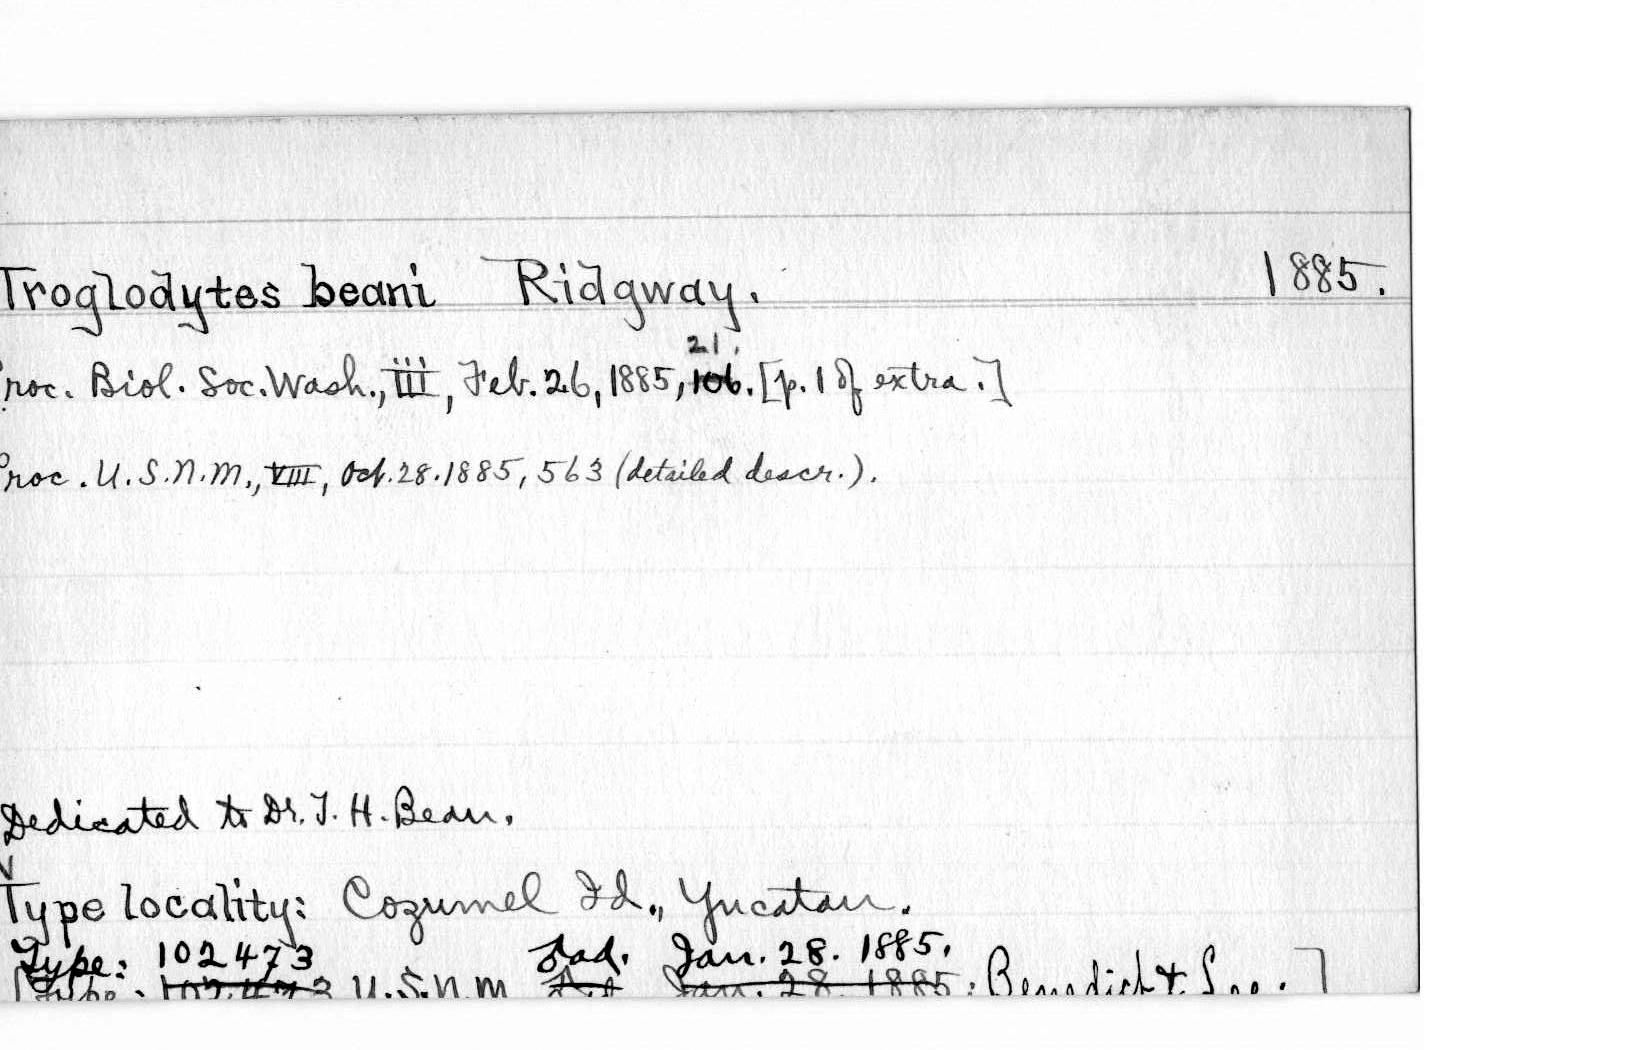 Troglodytes beani Ridgway. 1885.
21.
roc. Biol. Soc. Wash., iii, Feb. 26, 1885, 106. [p. 1 of extra.]
Proc. U.S.N.M., VIII, Oct. 28. 1885, 563 (detailed descr.).
Dedicated to Dr. T. H. Bean.
Type locality: Cozumel Id., Yucatan.
Type: 102473 Jan. 28. 1885.
[Type: 102473 U.S.N.M. Jan. 28. 1885; Benedict ]